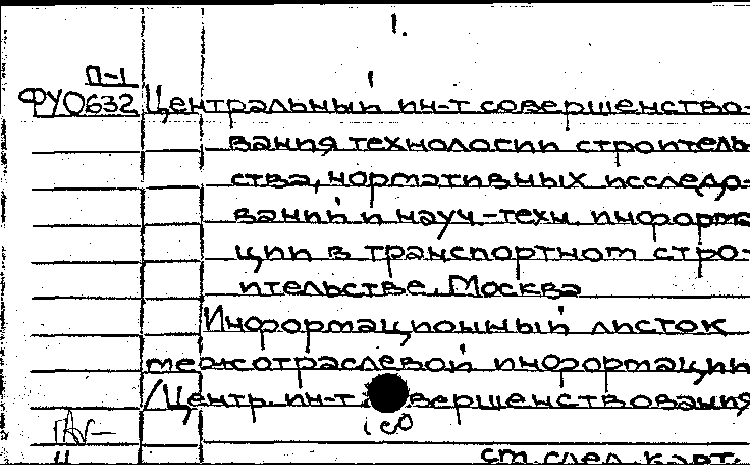 1.
П-1
ФУ0632 Центральный ин-т совершенство-
вания технологии строитель-
ства, нормативных исследо-
ваний и науч-техн. информа-
ции в транспортном стро-
ительстве. Москва
Информационный листок
межотраслевой информации
/Центр. ин-т совершенствования
со
ст. след. карт.